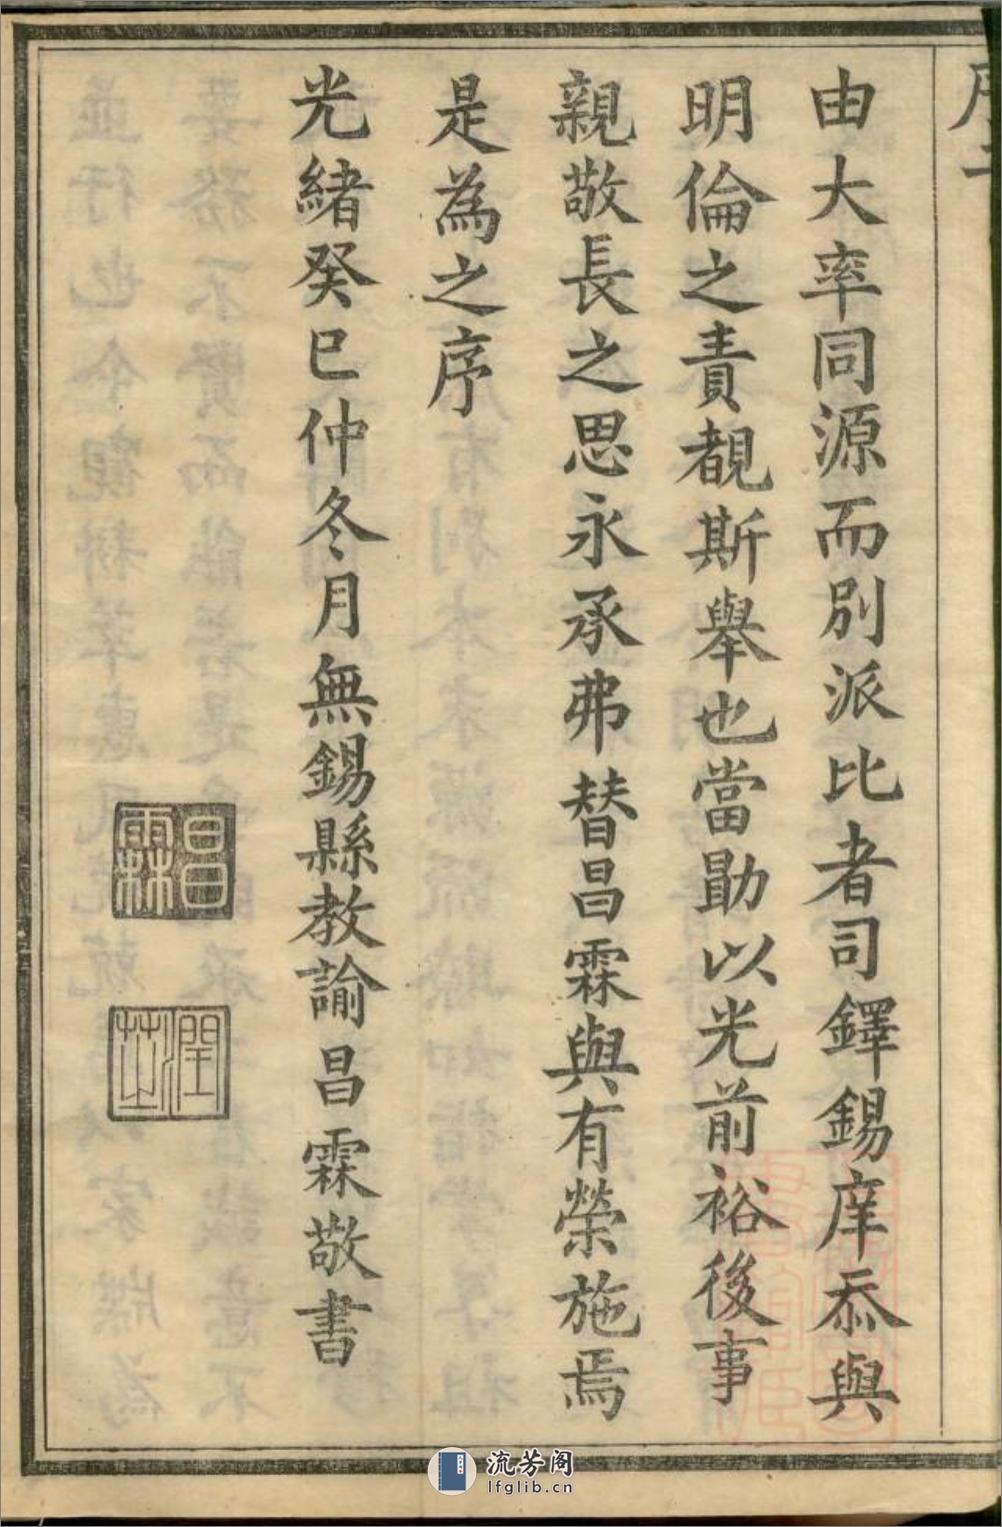 由大率同源而別派比者司鐸錫庠忝與
明倫之責覩斯舉也當勖以光前裕後事
親敬長之思永承弗替昌霖與有榮施焉
是為之序
光緒癸巳仲冬月無錫縣教諭昌霖敬書
昌霖
潤芷
流芳阁
lfglib.cn